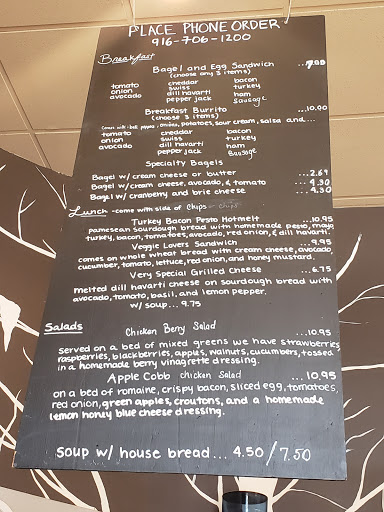 PLACE PHONE ORDER
916-706-1200
Breakfast
Bagel and Egg Sandwich ...7.00
(choose any 3 items)
tomato cheddar bacon
onion swiss turkey
avocado dill havarti ham
pepper jack Sausage
Breakfast Burrito ...10.00
(choose 3 items)
Comes with - bell peppers, onions, potatoes, sour cream, salsa and...
tomato cheddar bacon
onion swiss turkey
avocado dill havarti ham
pepper jack Sausage
Specialty Bagels
Bagel w/ cream cheese or butter ...2.69
Bagel w/ cream cheese, avocado, & tomato ...4.30
Bagel w/ cranberry and brie cheese ...4.50
Lunch - come with side of chips - chips
Turkey Bacon Pesto Hotmelt ...10.95
pamesean sourdough bread with homemade pesto, mayo
turkey, bacon, tomatoes, avocado, red onion, & dill havarti.
Veggie Lovers Sandwich ...9.95
comes on whole wheat bread with cream cheese, avocado
cucumber, tomato, lettuce, red onion, and honey mustard.
Very Special Grilled Cheese ...6.75
melted dill havarti cheese on sourdough bread with
avocado, tomato, basil, and lemon pepper.
w/ soup... 9.75
Salads
Chicken Berry Salad ...10.95
Served on a bed of mixed greens we have strawberries
raspberries, blackberries, apples, walnuts, cucumbers, tossed
in a homemade berry vinagrette dressing.
Apple Cobb chicken Salad ...10.95
on a bed of romaine, crispy bacon, sliced egg, tomatoes,
red onion, green apples, croutons, and a homemade
lemon honey blue cheese dressing.
soup w/ house bread... 4.50/7.50